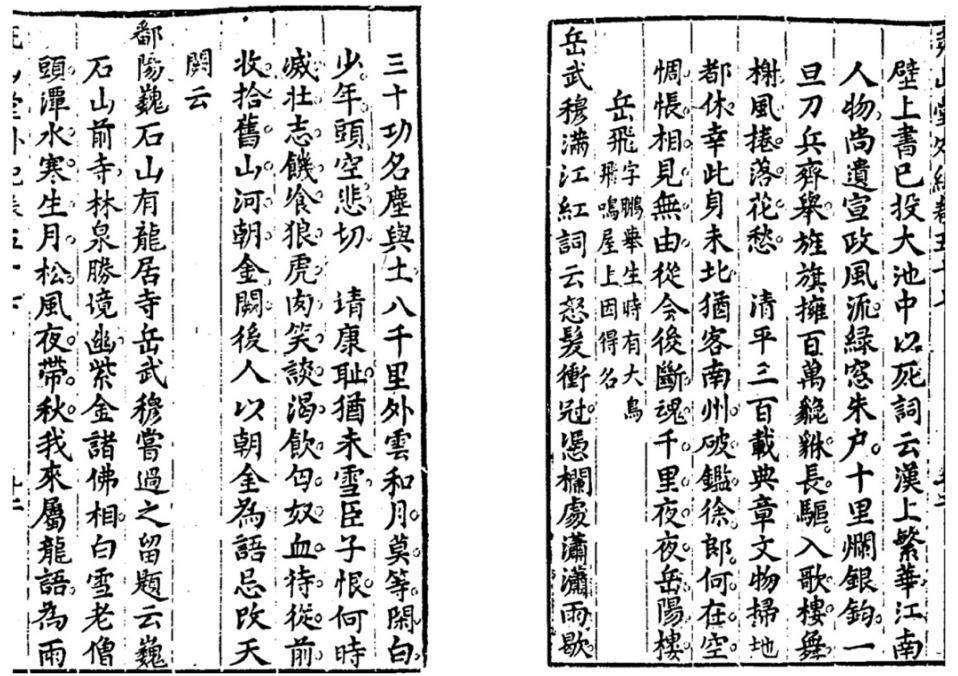 壁上書已投大池中以死詞云漢上繁華江南
人物尚遺宣政風流綠窓朱户十里爛銀鉤一
旦刀兵齊舉旌旗擁百萬貔貅長驅入歌樓舞
榭風捲落花愁　清平三百載典章文物掃地
都休幸此身未北猶客南州破鑑徐郎何在空
惆悵相見無由從今後斷魂千里夜夜岳陽樓
岳飛
字鵬舉生時有大鳥
飛鳴屋上因得名
岳武穆滿江紅詞云怒髮衝冠憑欄處瀟瀟雨歇
三十功名塵與土八千里外雲和月莫等閑白
少年頭空悲切　靖康耻猶未雪臣子恨何時
滅壯志饑飡狼虎肉笑談渴飲匈奴血待從前
收拾舊山河朝金闕後人以朝金為語忌改天
闕云
鄱陽巍石山有龍居寺岳武穆嘗過之留題云巍
石山前寺林泉勝境幽紫金諸佛相白雪老僧
頭潭水寒生月松風夜帶秋我來屬龍語為雨